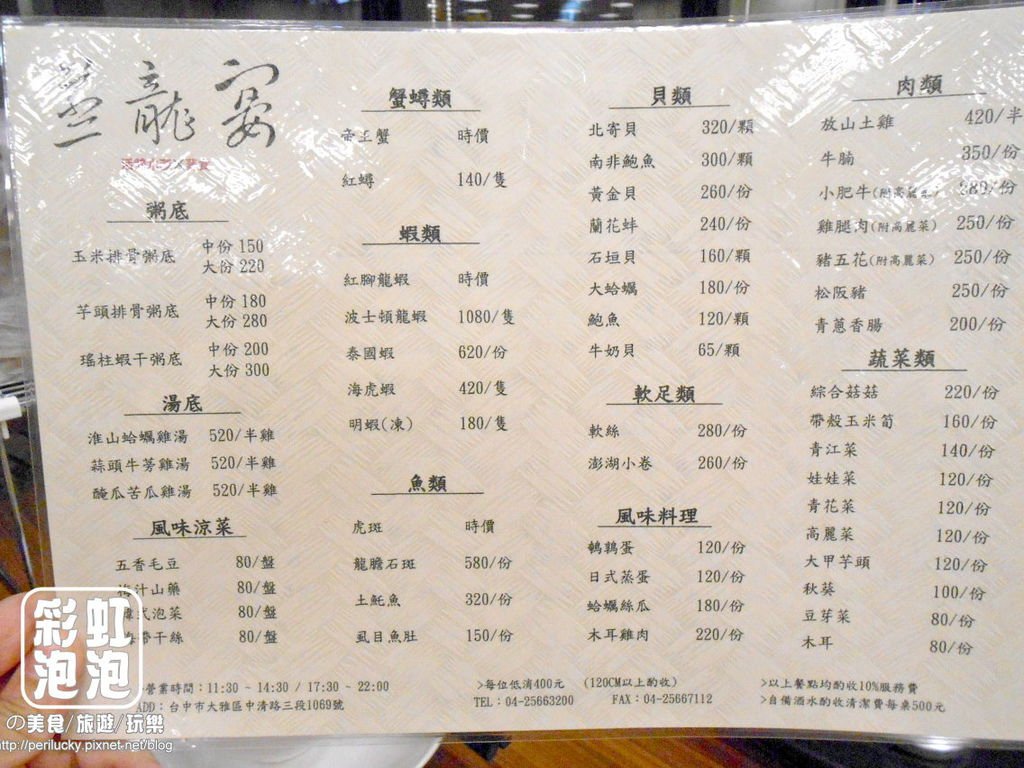 龍宴
粥底
玉米排骨粥底 中份 150
大份 220
芋頭排骨粥底 中份 180
大份 280
瑤柱蝦干粥底 中份 200
大份 300
湯底
淮山蛤蠣雞湯 520/半雞
蒜頭牛蒡雞湯 520/半雞
醃瓜苦瓜雞湯 520/半雞
風味涼菜
五香毛豆 80/盤
梅汁山藥 80/盤
韓式泡菜 80/盤
海帶干絲 80/盤
蟹蟳類
帝王蟹 時價
紅蟳 140/隻
蝦類
紅腳龍蝦 時價
波士頓龍蝦 1080/隻
泰國蝦 620/份
海虎蝦 420/隻
明蝦(凍) 180/隻
魚類
虎斑 時價
龍膽石斑 580/份
土魠魚 320/份
虱目魚肚 150/份
貝類
北寄貝 320/顆
南非鮑魚 300/顆
黃金貝 260/份
蘭花蚌 240/份
石垣貝 160/顆
大蛤蠣 180/份
鮑魚 120/顆
牛奶貝 65/顆
軟足類
軟絲 280/份
澎湖小卷 260/份
風味料理
鵪鶉蛋 120/份
日式蒸蛋 120/份
蛤蠣絲瓜 180/份
木耳雞肉 220/份
肉類
放山土雞 420/半
牛腩 350/份
小肥牛(附高麗菜) 280/份
雞腿肉(附高麗菜) 250/份
豬五花(附高麗菜) 250/份
松阪豬 250/份
青蔥香腸 200/份
蔬菜類
綜合菇菇 220/份
帶殼玉米筍 160/份
青江菜 140/份
娃娃菜 120/份
青花菜 120/份
高麗菜 120/份
大甲芋頭 120/份
秋葵 100/份
豆芽菜 80/份
木耳 80/份
營業時間：11:30 ~ 14:30 / 17:30 ~ 22:00
ADD：台中市大雅區中清路三段1069號
>每位低消400元 (120CM以上酌收)
TEL：04-25663200 FAX：04-25667112
>以上餐點均酌收10%服務費
>自備酒水酌收清潔費每桌500元
彩虹
泡泡
の美食/旅遊/玩樂
http://perilucky.pixnet.net/blog